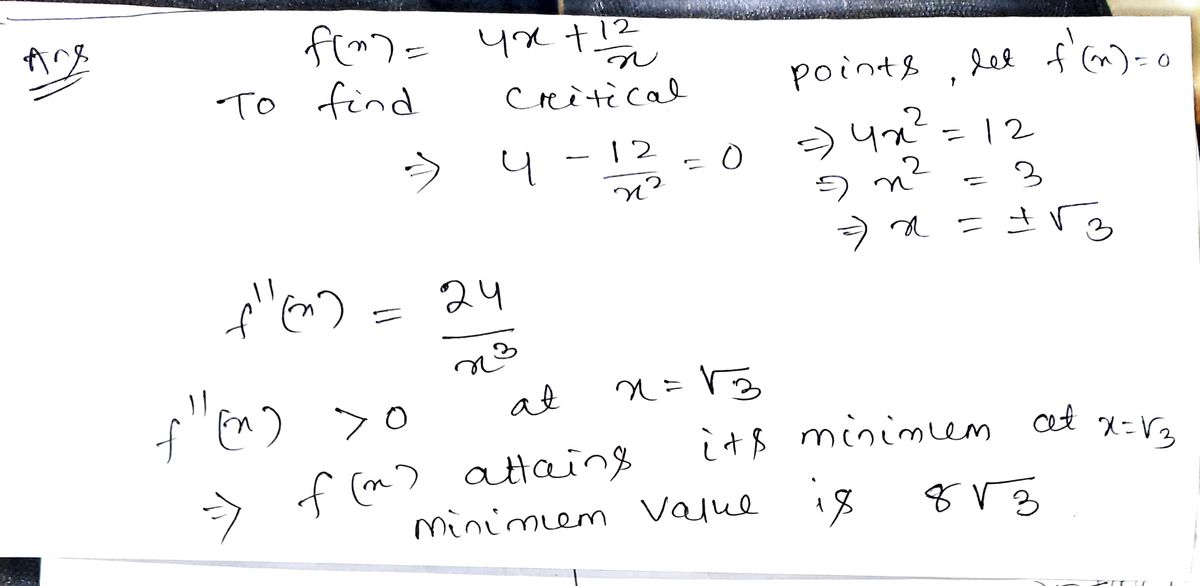 Ans f(x) = 4x + 12/x
To find critical points, let f'(x)=0
⇒ 4 - 12/x² = 0 ⇒ 4x² = 12
⇒ x² = 3
⇒ x = ±√3
f''(x) = 24/x³
f''(x) > 0 at x = √3
⇒ f(x) attains its minimum at x=√3
minimum value is 8√3